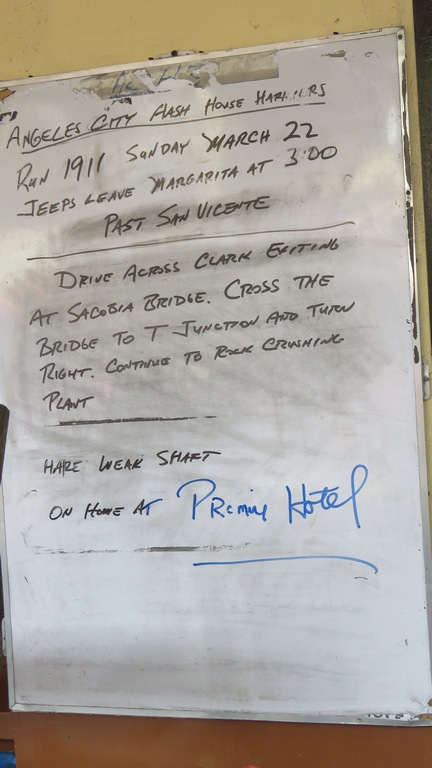 ANGELES CITY FLASH HOUSE HARRIERS
RUN 1911 SUNDAY MARCH 22
JEEPS LEAVE MARGARITA AT 3:00
PAST SAN VICENTE
DRIVE ACROSS CLARK EXITING
AT SACOBIA BRIDGE. CROSS THE
BRIDGE TO T JUNCTION AND TURN
RIGHT. CONTINUE TO ROCK CRUSHING
PLANT
HARE WEAK SHAFT
ON HOME AT Premiy Hotel